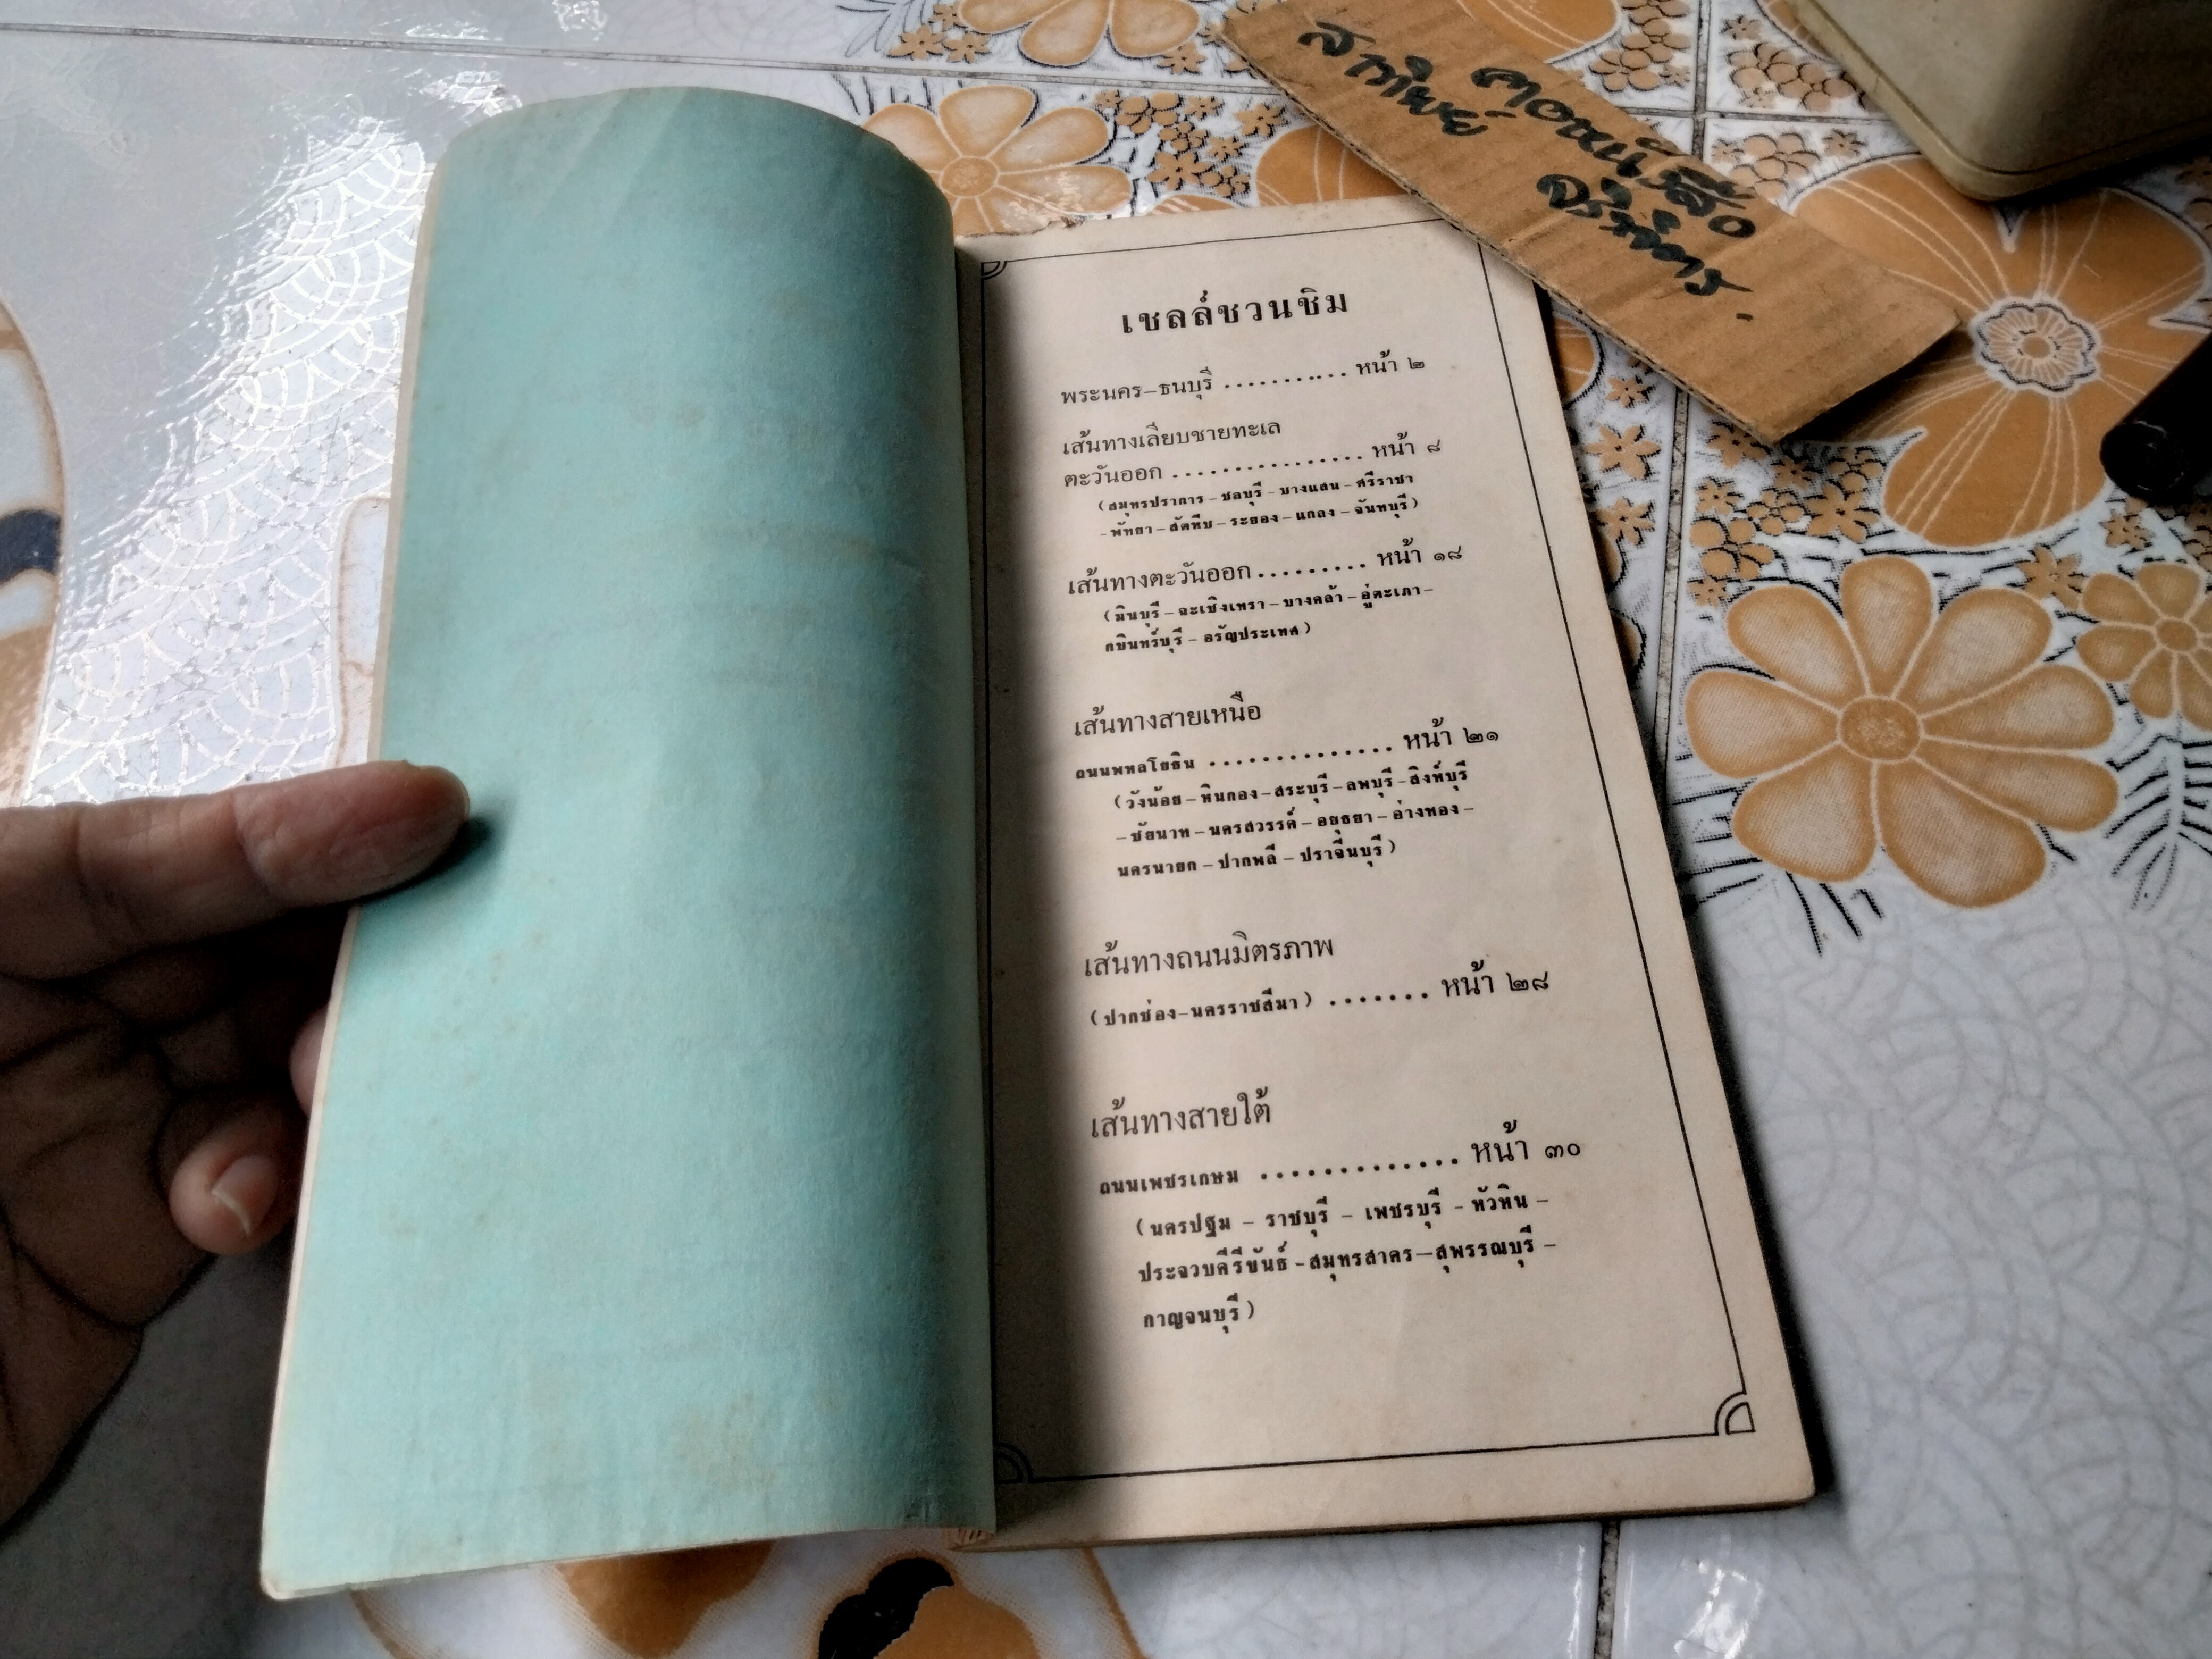 เชลล์ชวนชิม
พระนคร–ธนบุรี ........... หน้า ๒
เส้นทางเลียบชายทะเล
ตะวันออก ................ หน้า ๘
(สมุทรปราการ – ชลบุรี – บางแสน – ศรีราชา
– พัทยา – สัตหีบ – ระยอง – แกลง – จันทบุรี)
เส้นทางตะวันออก......... หน้า ๑๘
(มีนบุรี – ฉะเชิงเทรา – บางคล้า – อู่ตะเภา –
กบินทร์บุรี – อรัญประเทศ)
เส้นทางสายเหนือ
ถนนพหลโยธิน .............. หน้า ๒๑
(วังน้อย – หินกอง – สระบุรี – ลพบุรี – สิงห์บุรี
– ชัยนาท – นครสวรรค์ – อยุธยา – อ่างทอง –
นครนายก – ปากพลี – ปราจีนบุรี)
เส้นทางถนนมิตรภาพ
(ปากช่อง–นครราชสีมา) ....... หน้า ๒๘
เส้นทางสายใต้
ถนนเพชรเกษม ............. หน้า ๓๐
(นครปฐม – ราชบุรี – เพชรบุรี – หัวหิน –
ประจวบคีรีขันธ์ – สมุทรสาคร – สุพรรณบุรี –
กาญจนบุรี)